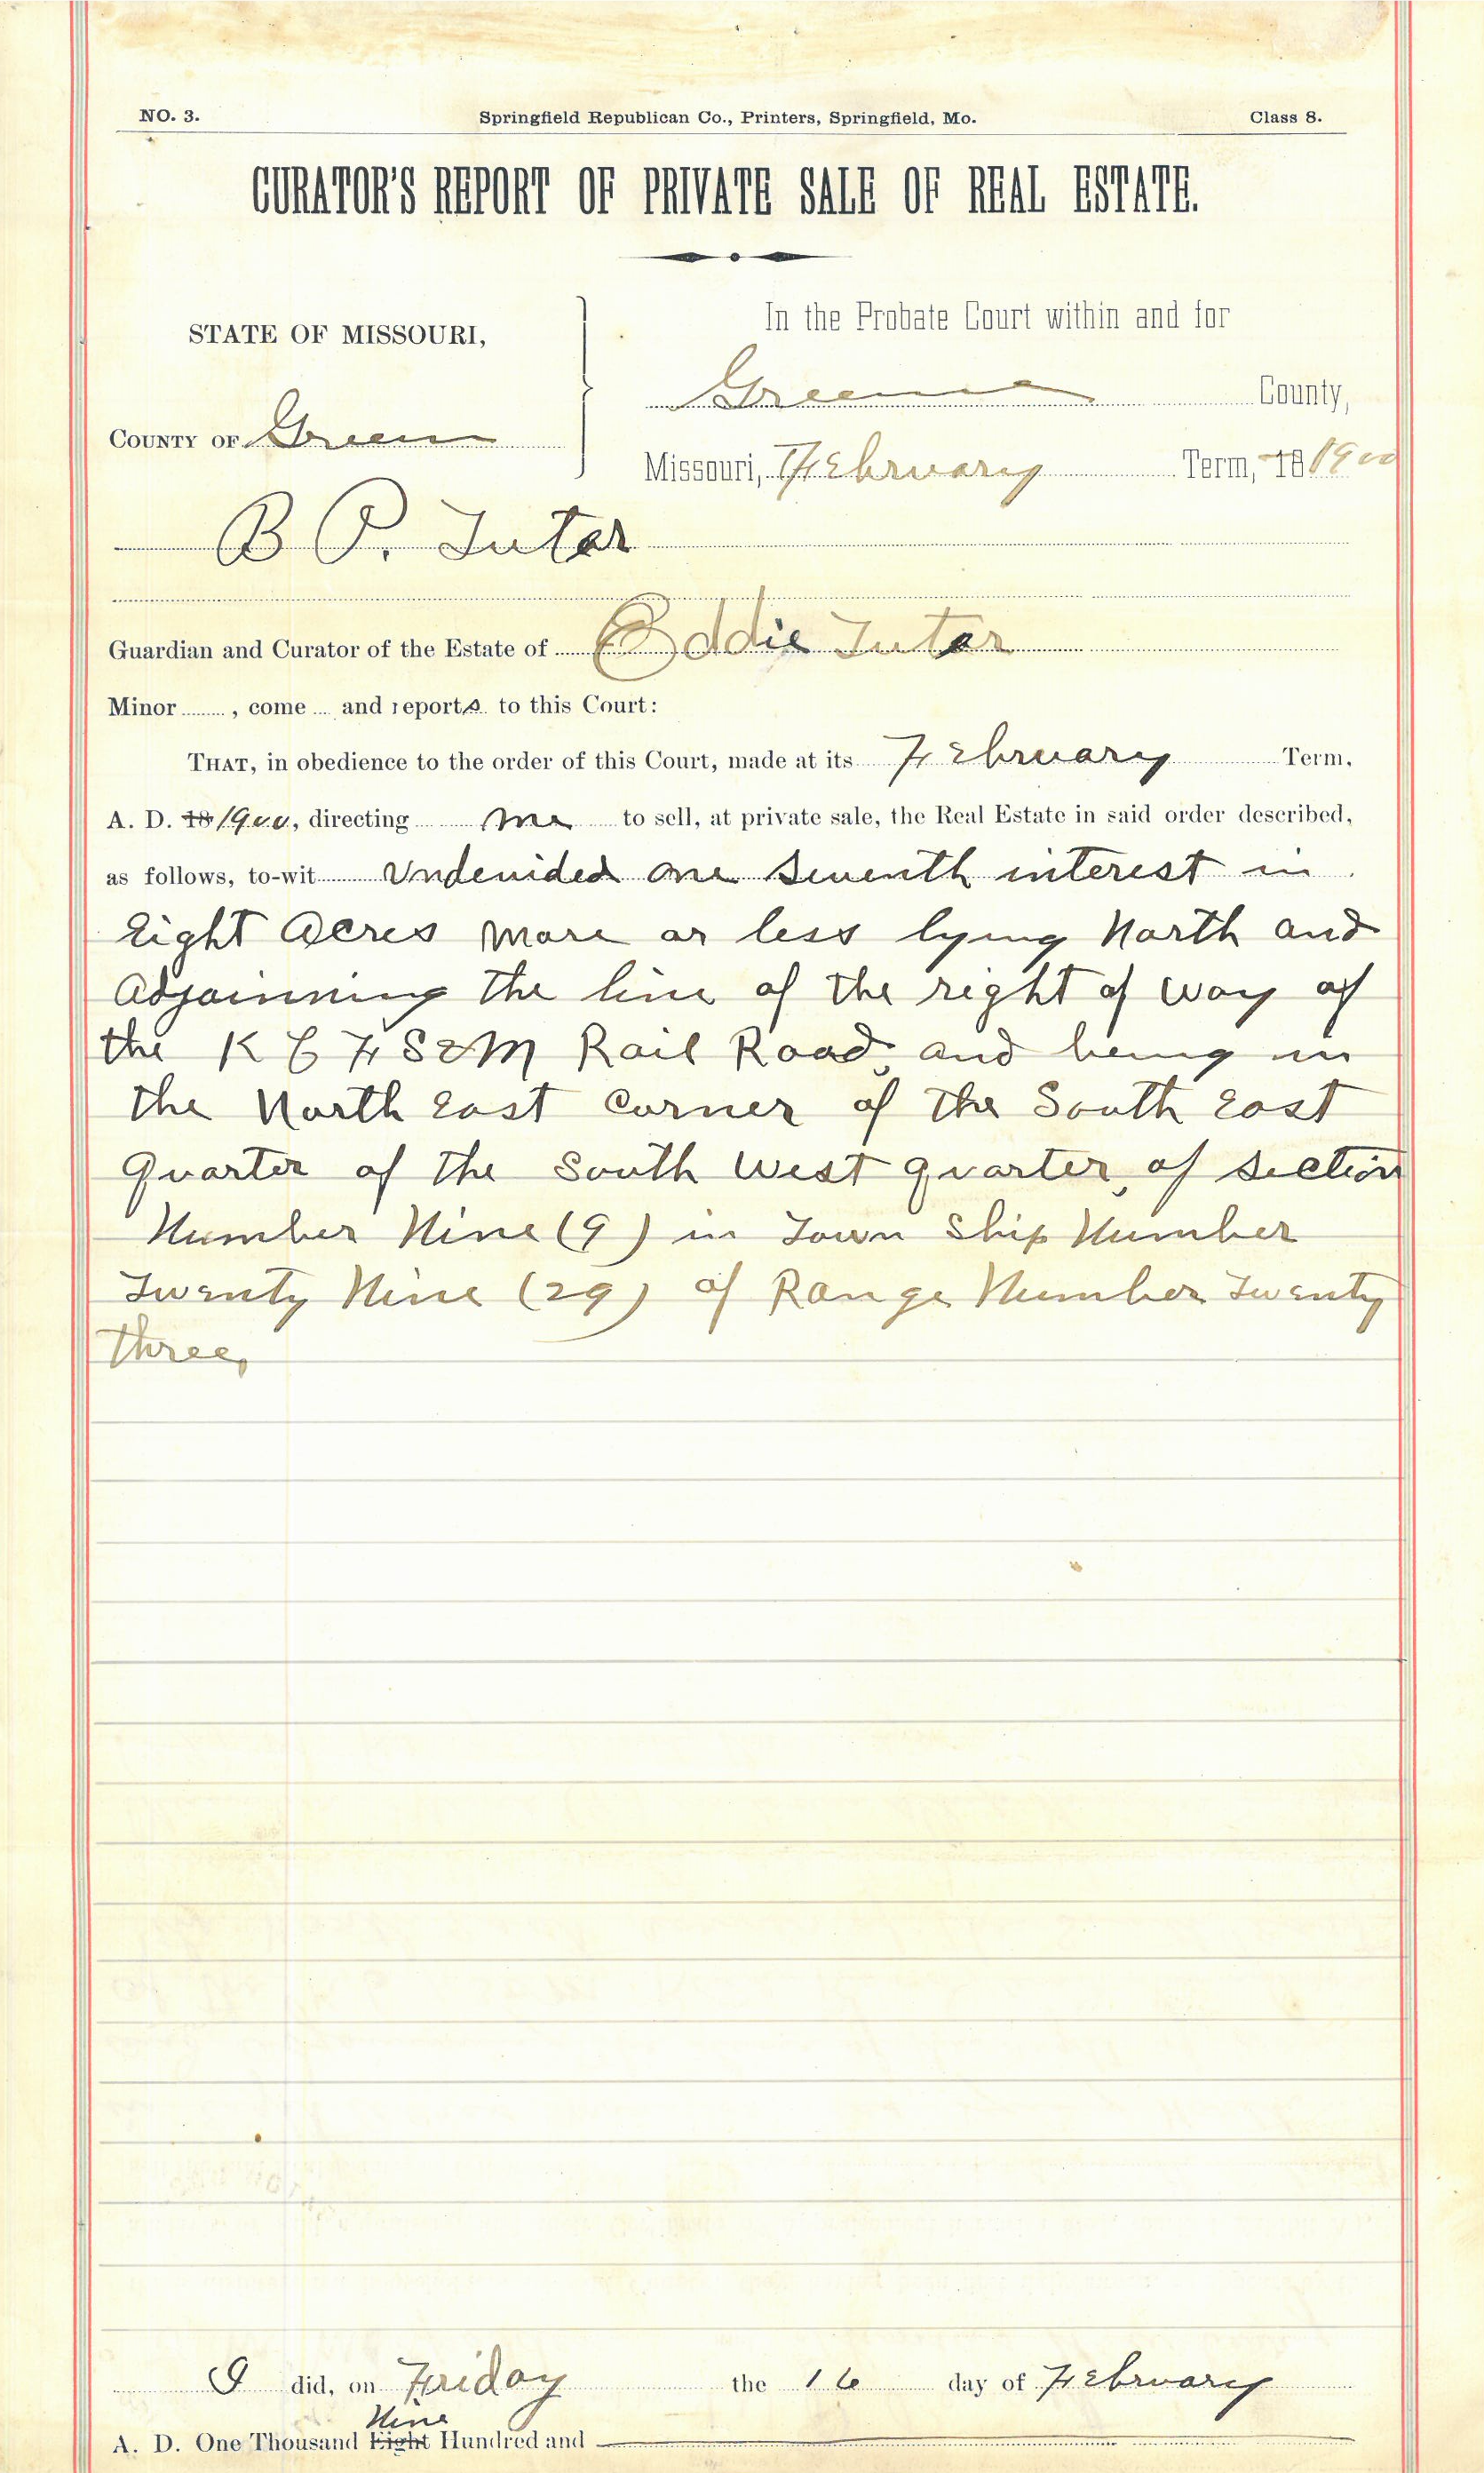 NO. 3. Springfield Republican Co., Printers, Springfield, Mo. Class 8.
CURATOR'S REPORT OF PRIVATE SALE OF REAL ESTATE.
STATE OF MISSOURI,
COUNTY OF Green
In the Probate Court within and for
Greene County,
Missouri, February Term, 18 1900
B P. Tuter
Guardian and Curator of the Estate of Eddie Tuter
Minor , come and reports to this Court:
THAT, in obedience to the order of this Court, made at its February Term,
A. D. 18 1900, directing me to sell, at private sale, the Real Estate in said order described,
as follows, to-wit Undevided one Seventh interest in
Eight Acres more or less lying North and
Adjoinning the line of the right of way of
the K C F S & M Rail Road, and being in
the North East corner of the South East
Quarter of the South West quarter, of Section
Number Nine (9) in Town Ship Number
Twenty Nine (29) of Range Number Twenty
three,
I did, on Friday the 16 day of February
Nine
A. D. One Thousand Eight Hundred and